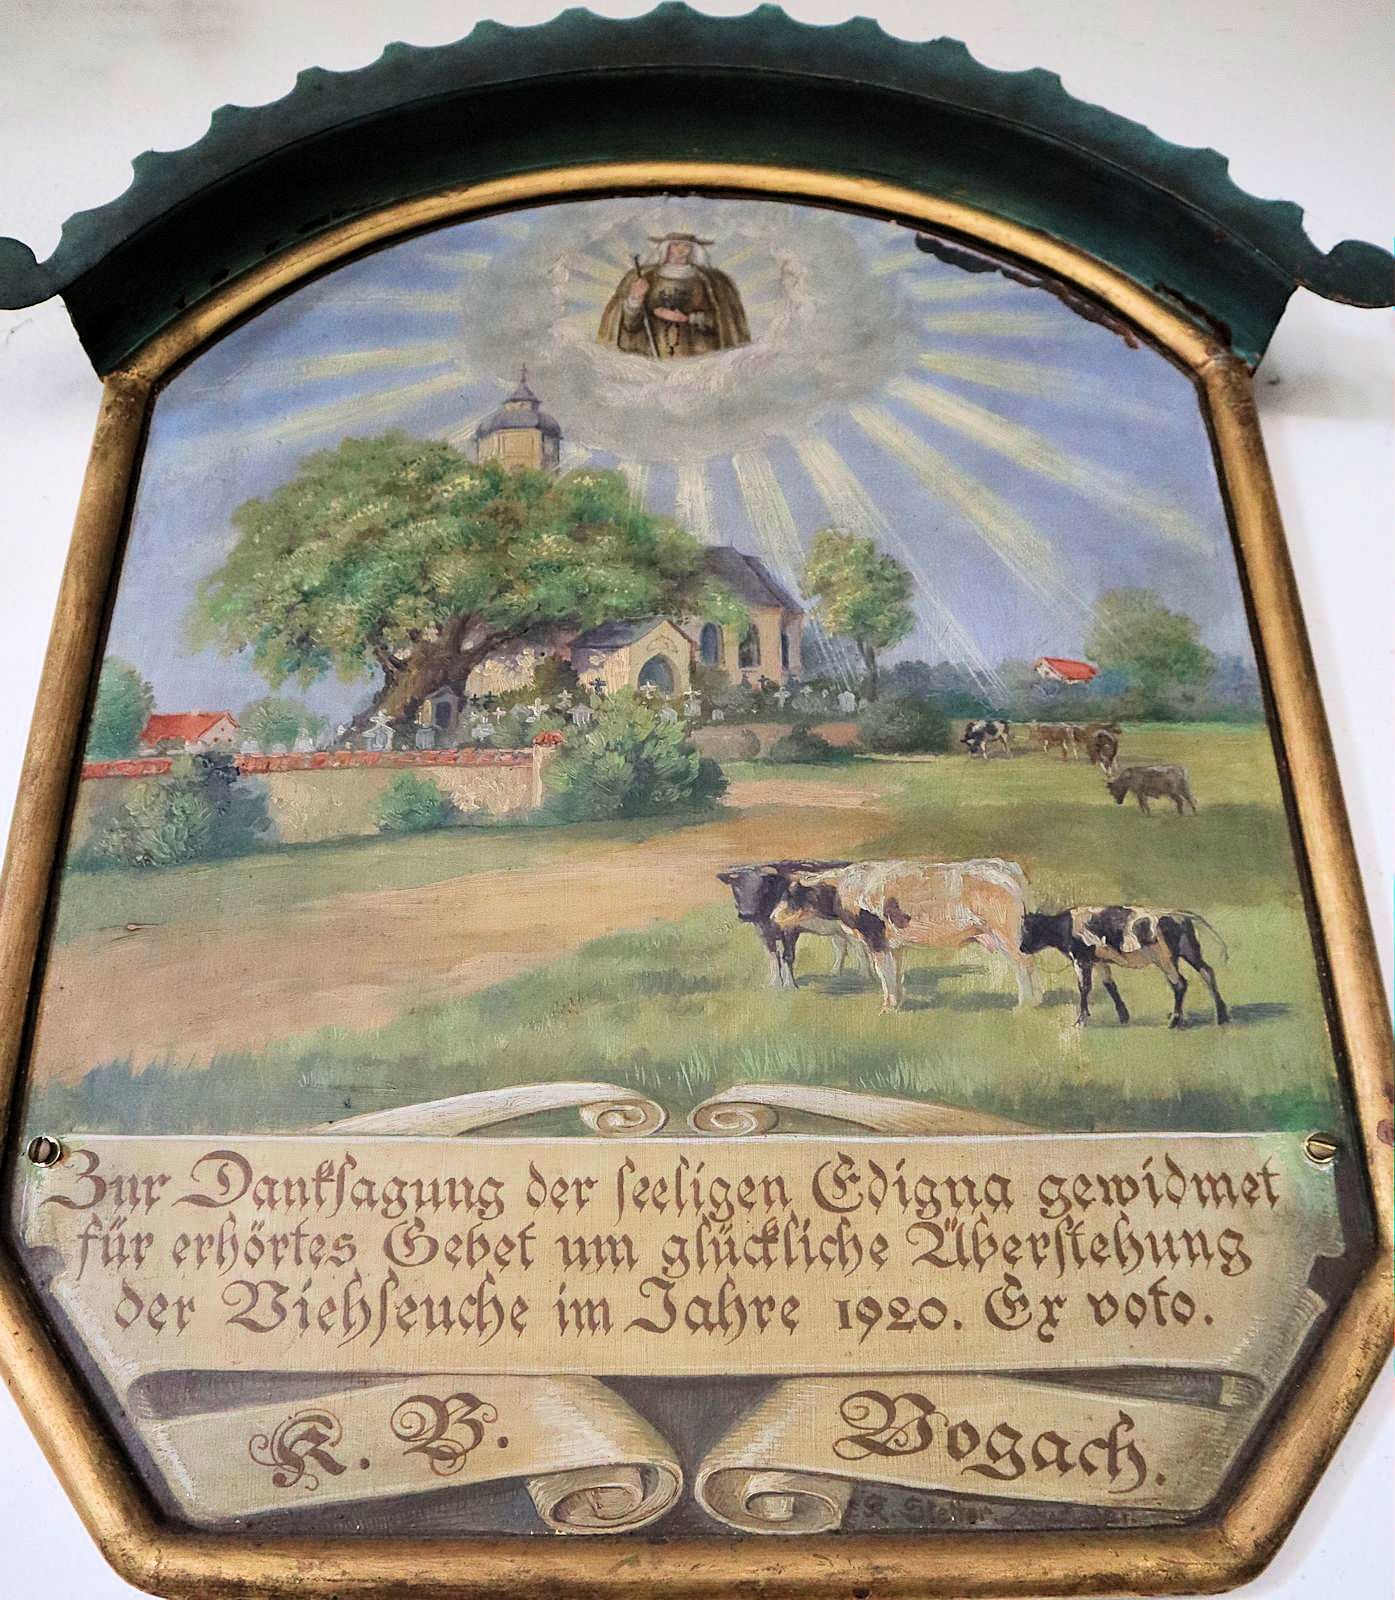 Zur Danksagung der seeligen Edigna gewidmet
für erhörtes Gebet um glückliche Überstehung
der Viehseuche im Jahre 1920. Ex voto.
K. B. Vogach.